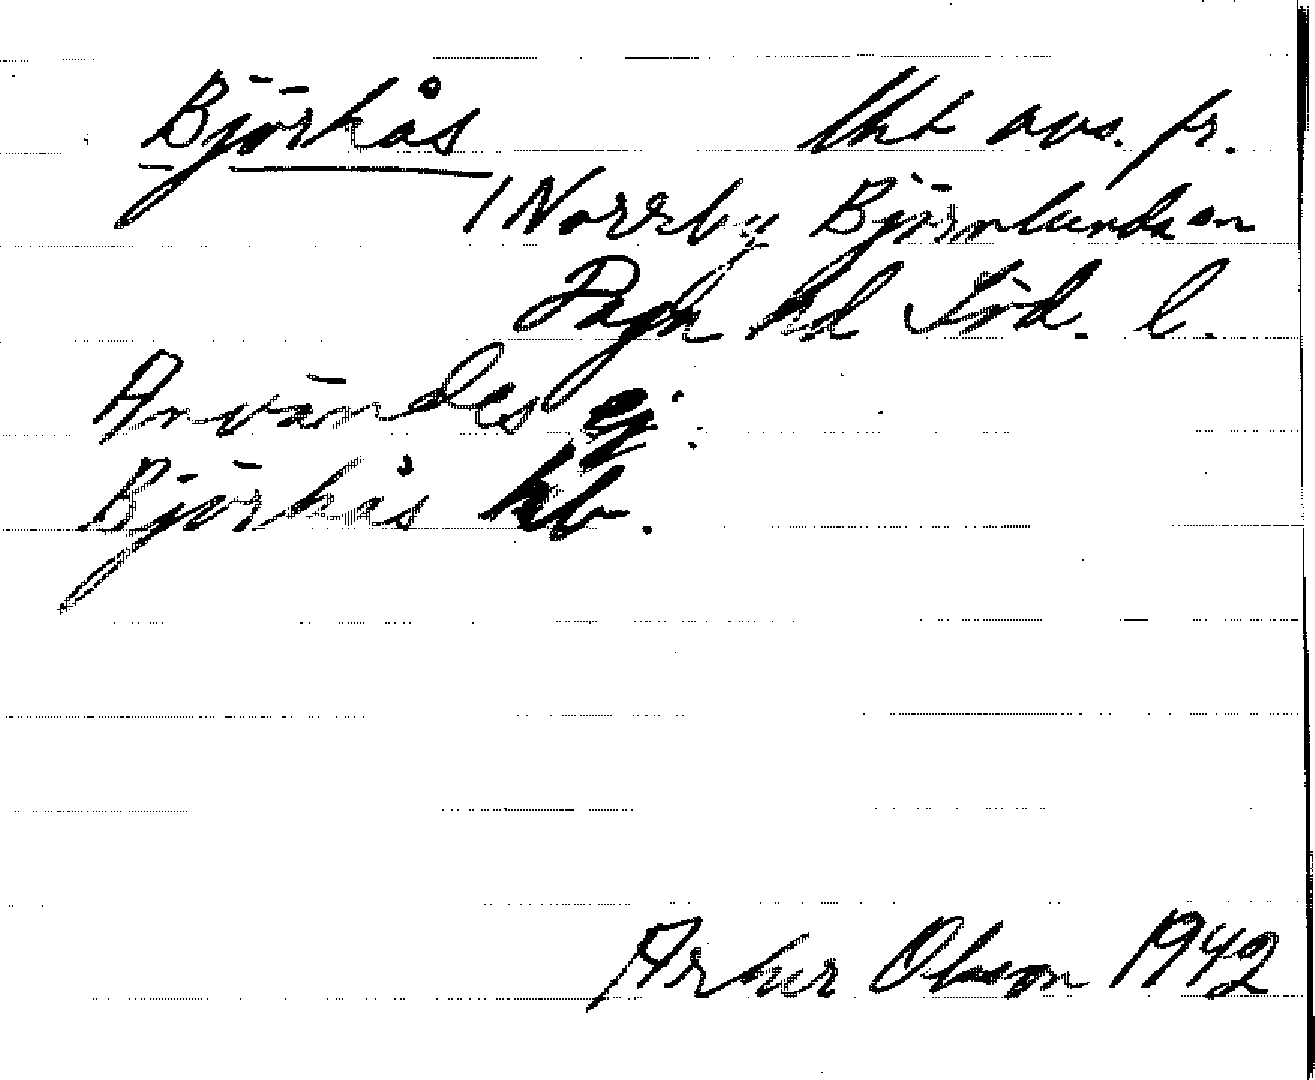 Björkås lht avs. fr.
1 Norrby Björnlunda sn
Daga hd Söd. l.
Användes ej.
Björkås kb.
Artur Olsson 1942